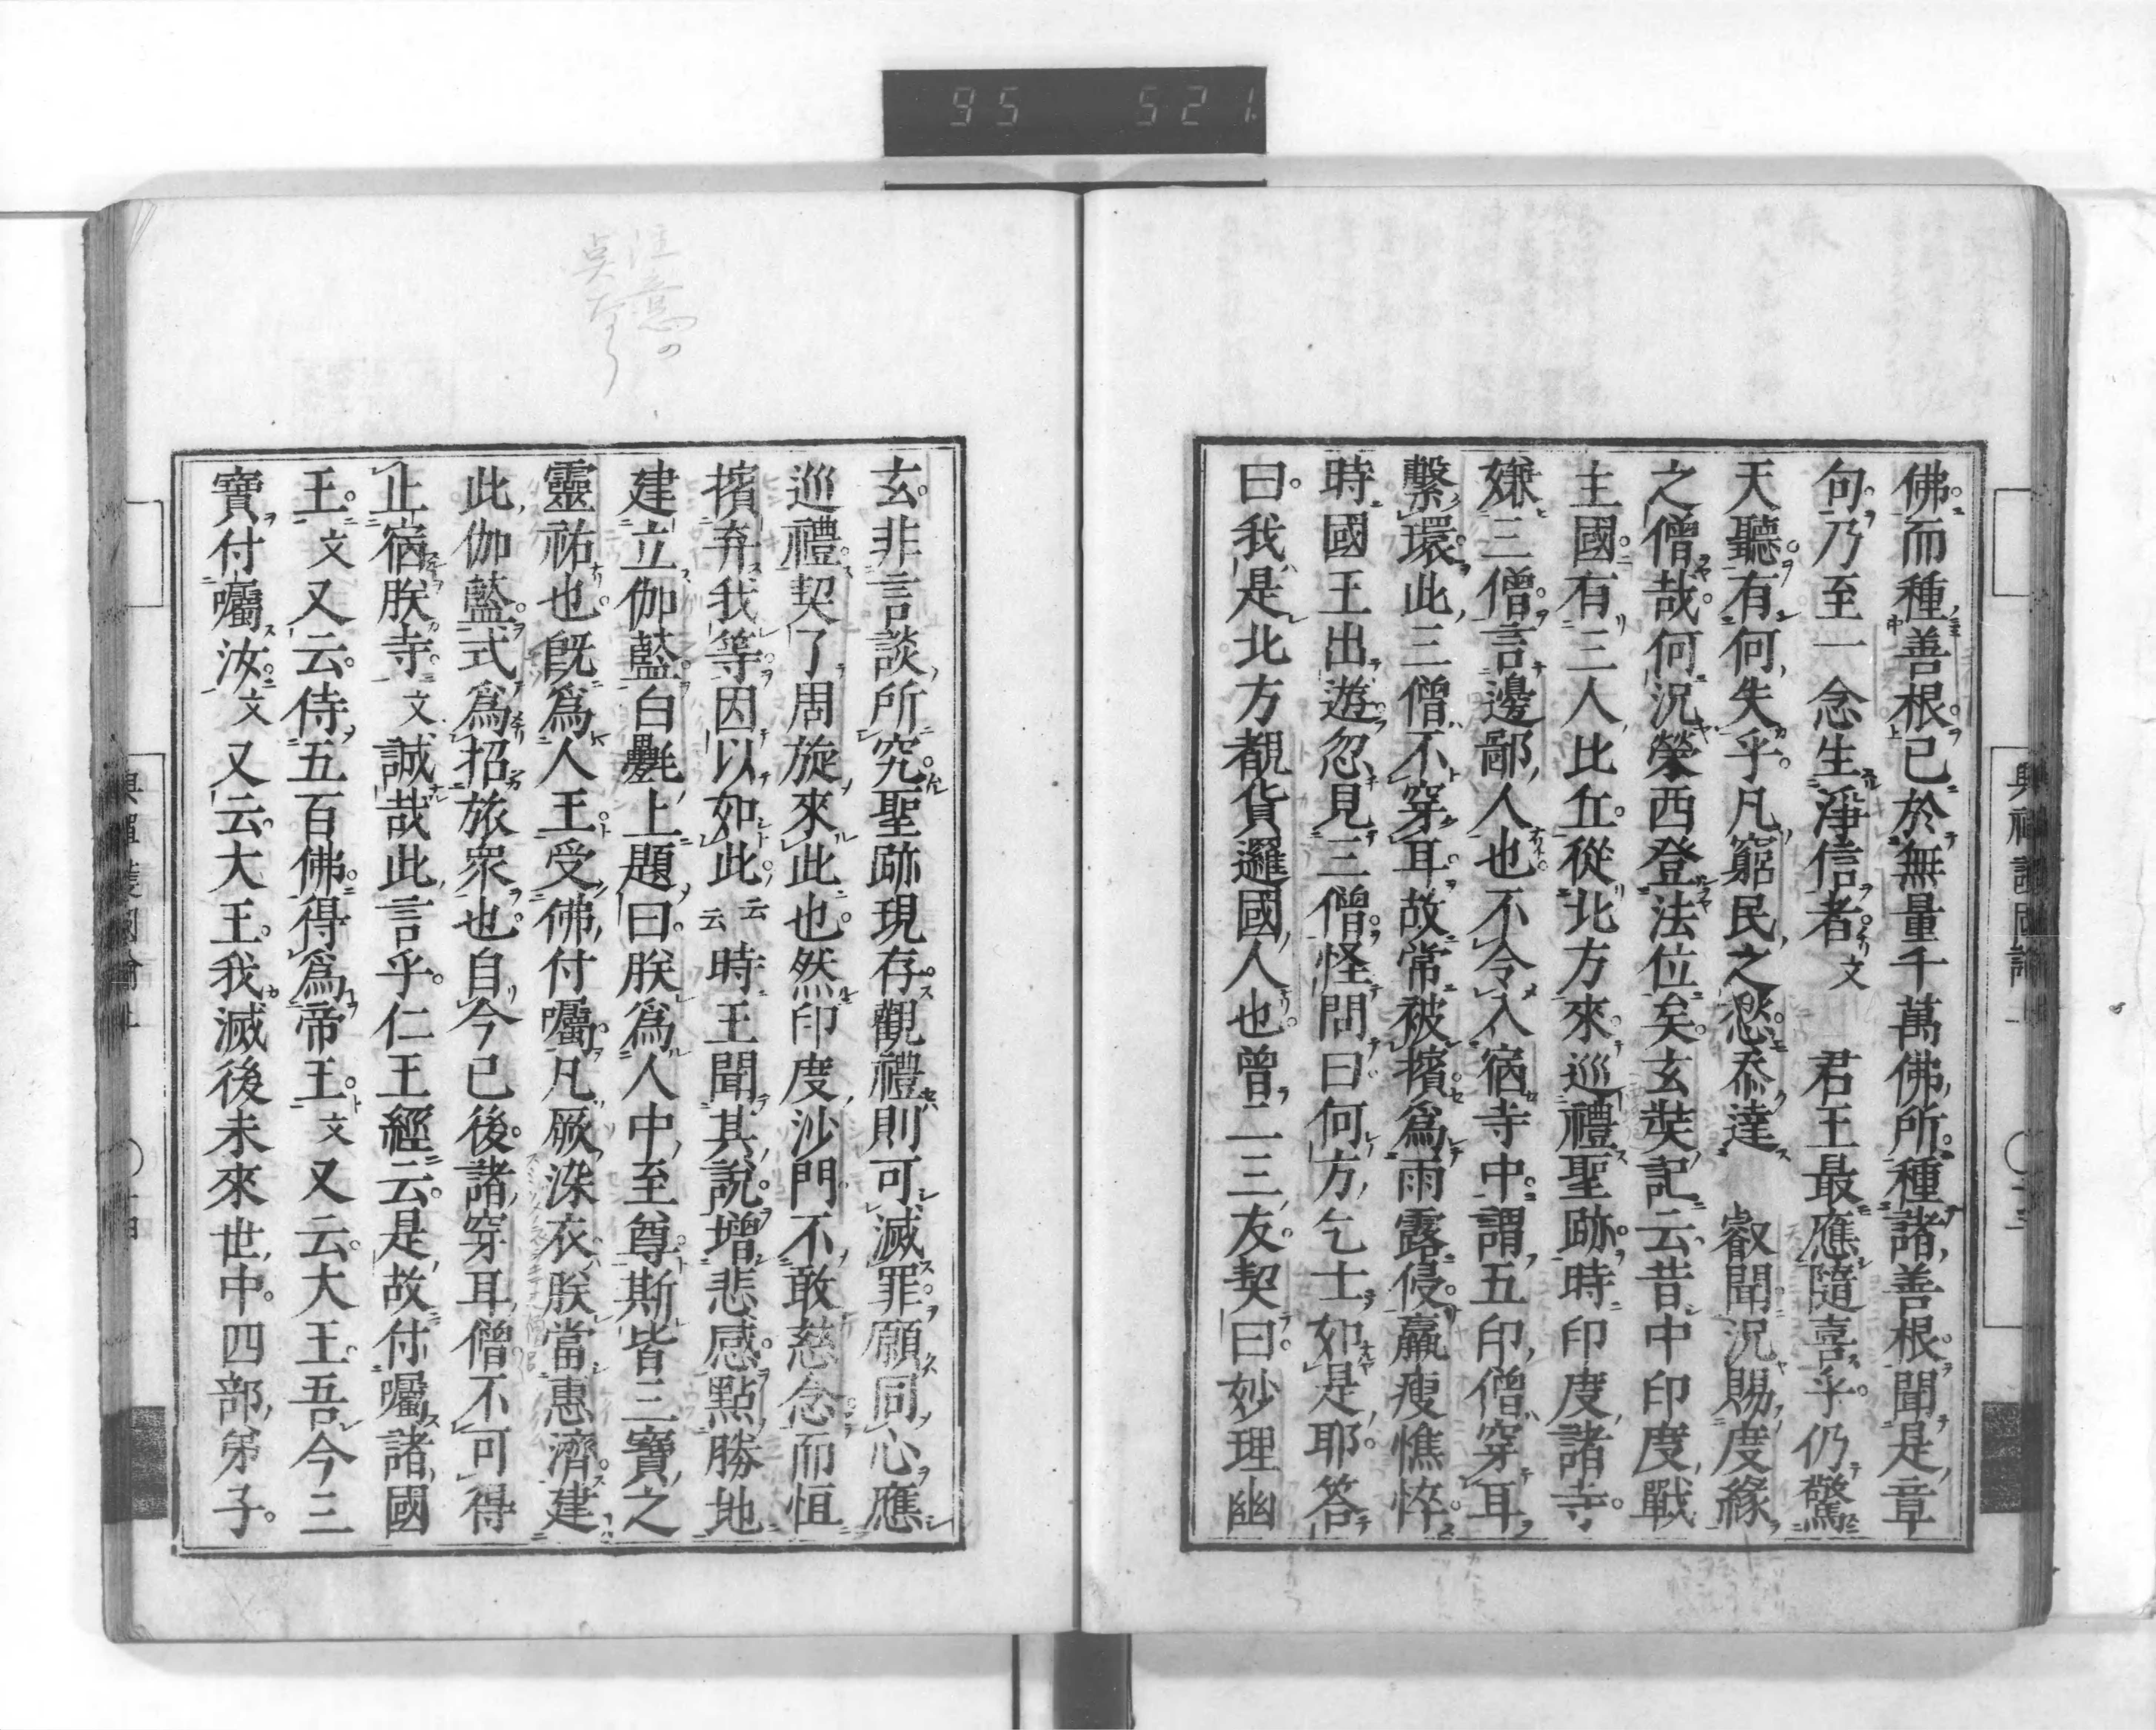 95 521
佛而種善根已於無量千萬佛所種諸善根聞是章
句乃至一念生淨信者文 君王最應隨喜乎仍驚
天聽有何失乎凡窮民之愁忝達 叡聞況賜度緣
之僧哉何況榮西登法位矣玄奘記云昔中印度戰
主國有三人比丘從北方來巡禮聖跡時印度諸寺
嫌三僧言邊鄙人也不令入宿寺中謂五印僧穿耳
繫環此三僧不穿耳故常被擯爲雨露侵羸瘦憔悴
時國王出遊忽見三僧怪問曰何方乞士如是耶答
曰我是北方覩貨邏國人也曾二三友契曰妙理幽
玄非言談所究聖跡現存觀禮則可滅罪願同心應
巡禮契了周旋來此也然印度沙門不敢慈念而恒
擯弃我等因以如此云云時王聞其說增悲感點勝地
建立伽藍白㲲上題曰朕爲人中至尊斯皆三寶之
靈祐也旣爲人王受佛付囑凡厥染衣朕當惠濟建
此伽藍式爲招旅衆也自今已後諸穿耳僧不可得
止宿朕寺文誠哉此言乎仁王經云是故付囑諸國
王文又云侍五百佛得爲帝王文又云大王吾今三
寶付囑汝文又云大王我滅後未來世中四部弟子
注意の